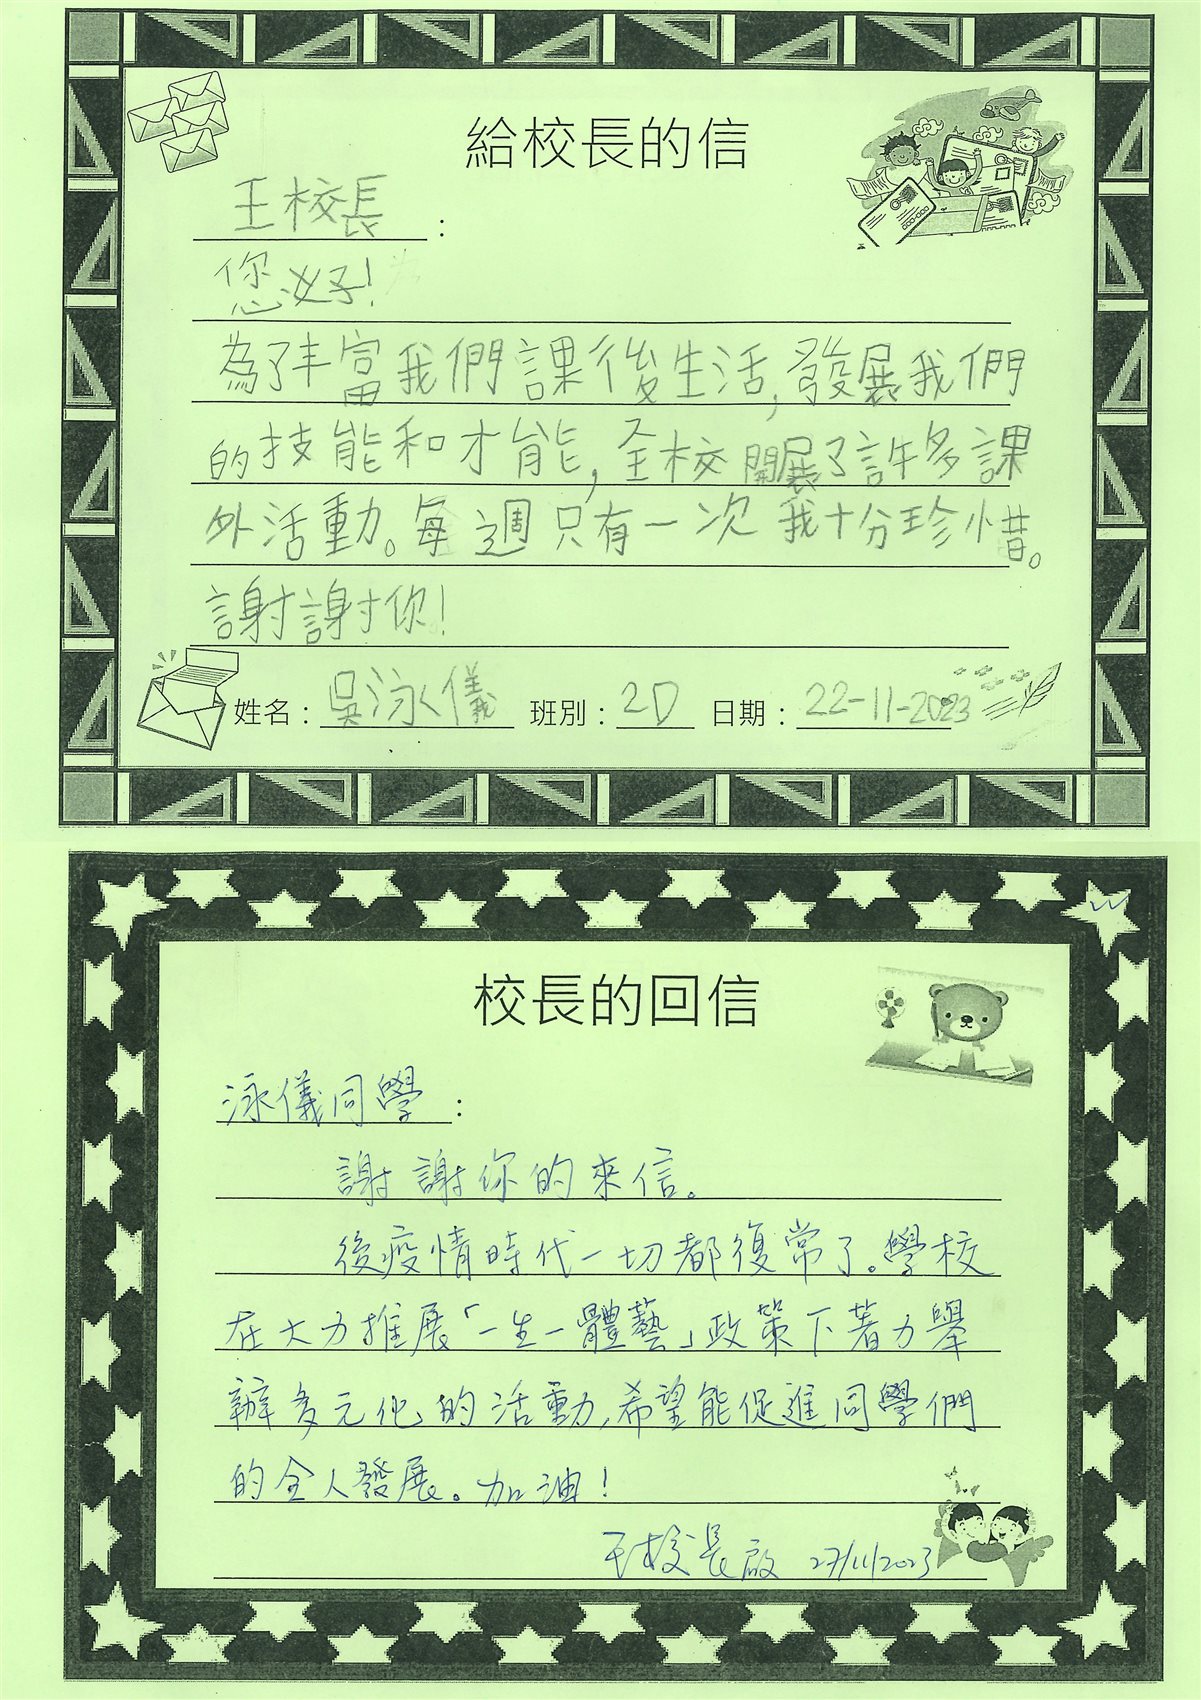 給校長的信
王校長：
您好！
為了丰富我們課後生活，發展我們
的技能和才能，全校開展了許多課
外活動。每週只有一次 我十分珍惜。
謝謝你！
姓名：吳泳儀 班別：2D 日期：22-11-2023
校長的回信
泳儀同學：
謝謝你的來信。
後疫情時代一切都復常了。學校
在大力推展「一生一體藝」政策下著力舉
辦多元化的活動，希望能促進同學們
的全人發展。加油！
王校長啟 27/11/2023